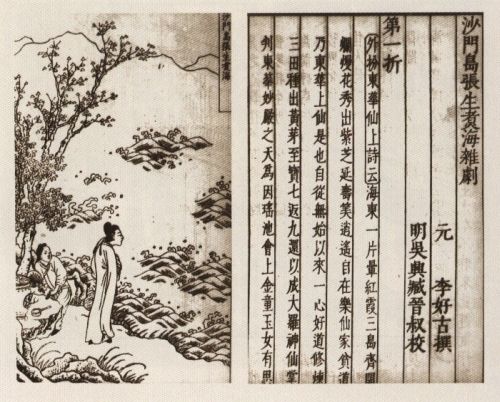 沙門島張生煮海雜劇
元　李好古撰
明吳興臧晉叔校
第一折
外扮東華仙上詩云海東一片暈紅霞三島齊開
爛熳花秀出紫芝延壽筭逍遙自在樂仙家貧道
乃東華上仙是也自從無始以來一心好道修煉
三田種出黃芽至寶七返九還以成大羅神仙掌
判東華妙嚴之天為因瑤池會上金童玉女有思
沙門島張生煮海